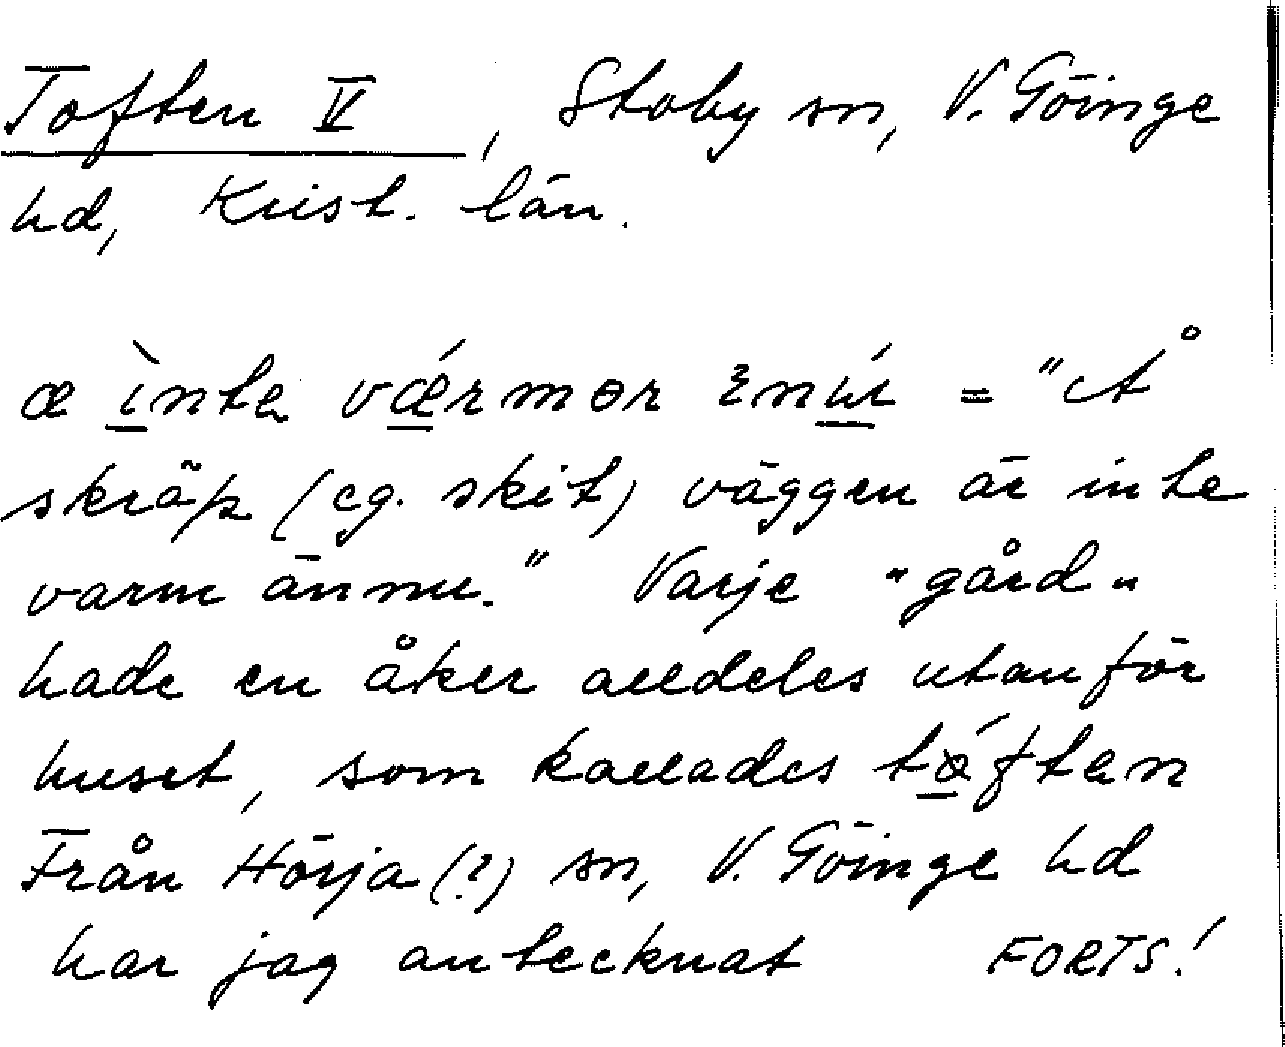 Toften V, Stoby sn, V. Göinge
hd, Krist. län.
æ ìnte vǽrmer enú = "Å
skräp (eg. skit) väggen är inte
varm ännu." Varje "gård"
hade en åker alldeles utanför
huset, som kallades tǿften
Från Hörja (?) sn, V. Göinge hd
har jag antecknat FORTS!